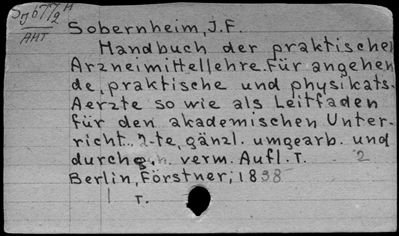 Sobernheim, J.F.
Handbuch der praktischen
Arzneimittellehre. Für angehen
de, praktische und physikats-
Aerzte so wie als Leitfaden
für den akademischen Unter-
richt. 2-te, gänzl. umgearb. und
durch verm. Aufl. T. 2
Berlin, Förstner, 1838
1 T.